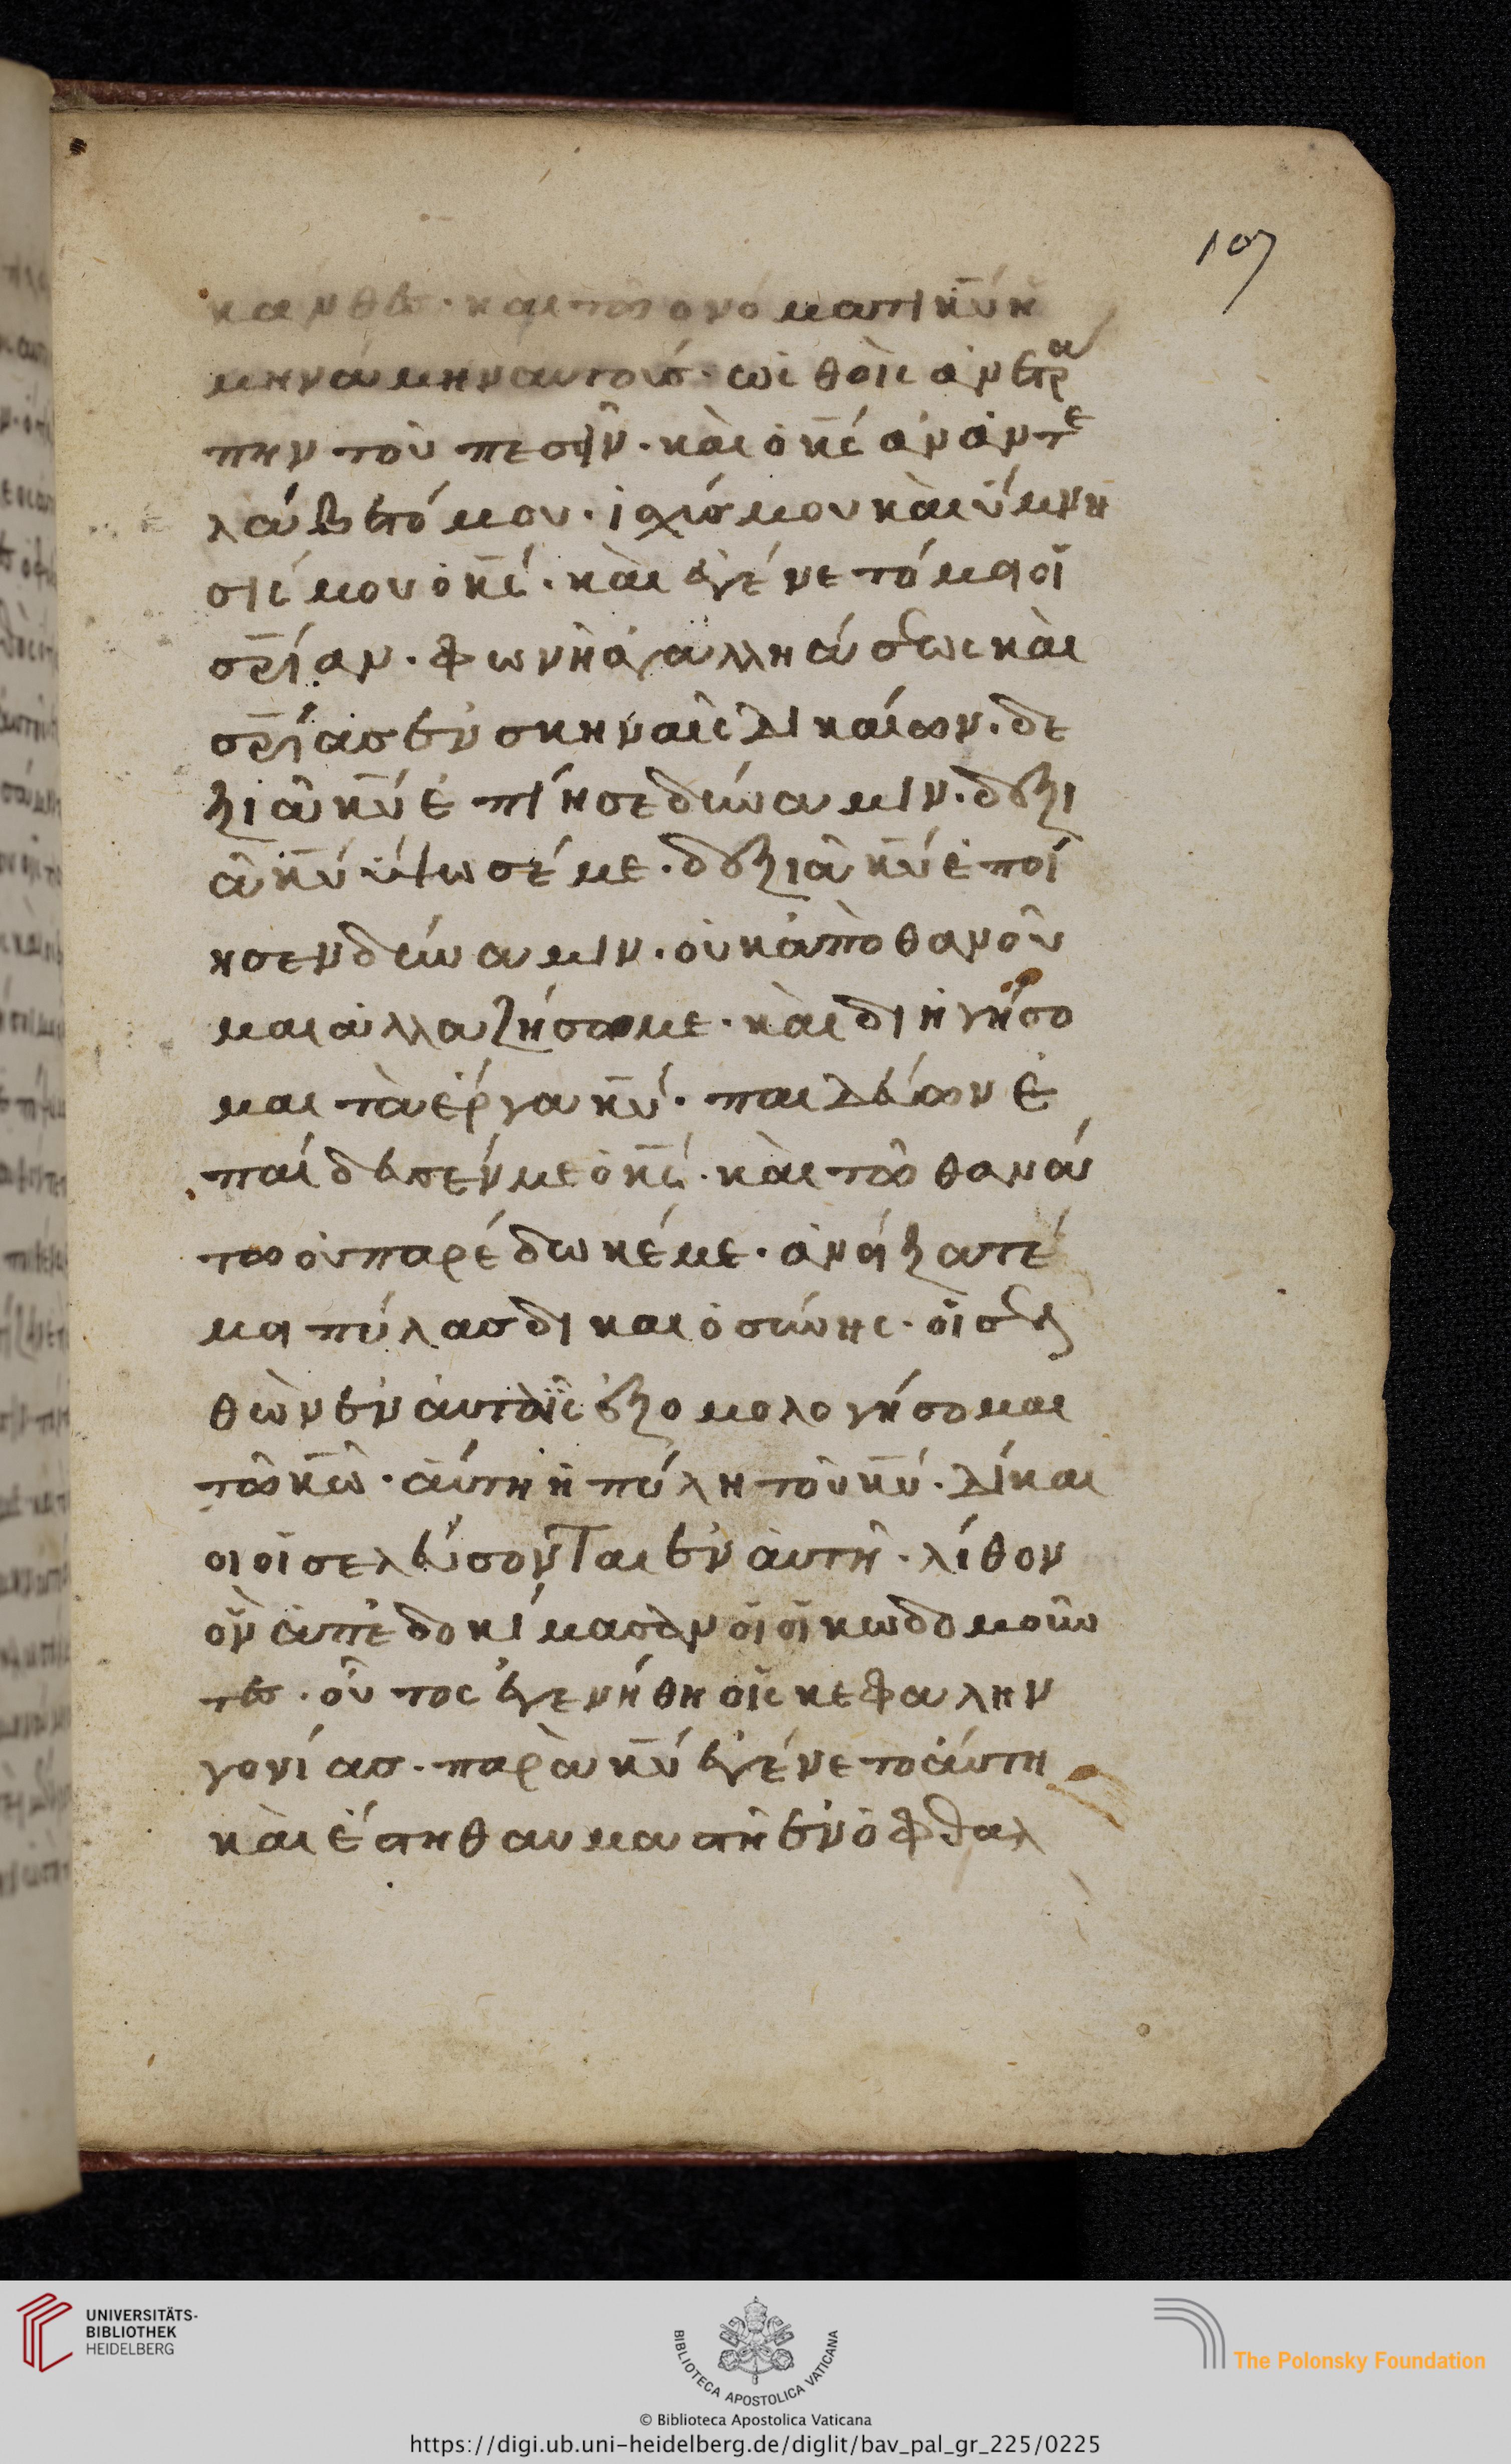 107
κανθαις · και τω ονόματι κ̅υ̅ η
μηνάμην αυτούς · ωσθὶς ἀνετρα
πην τοῦ πεσῆν · καὶ ὁ κ̅ς̅ ἀνἀντε
λάβετό μου · ἰσχύς μου καὶ ὕμνη
σίς μου ὁ κ̅ς̅ · καὶ ἐγένετό μοι εἰ
σ̅ρίαν · φωνὴ ἀγαλλιάσεως καὶ
σ̅ρίας ἐν σκηναῖς δικαίων · δε
ξιὰ κ̅υ̅ ἐπίησε δύναμιν · δεξι
ὰ κ̅υ̅ ὕψωσέ με · δεξιὰ κ̅υ̅ ἐποί
ησεν δύναμιν · οὐκ ἀποθανοῦ
μαι ἀλλα ζήσομε · καὶ διηγήσο
μαι τὰ ἔργα κ̅υ̅ · παιδεύων ἐ
παίδευσέν με ὁ κ̅ς̅ · καὶ τῶ θανά
τω οὐ παρέδωκέ με · ἀνοίξατέ
μοι πύλας δικαιοσύνης · εἰσελ
θὼν ἐν αὐταῖς ἐξομολογήσομαι
τῶ κ̅ω̅ · αὕτη ἡ πύλη τοῦ κ̅υ̅ · δίκαι
οι εἰσελεύσονται ἐν αὐτῆ · λίθον
ὃν ἀπεδοκίμασαν οἱ οἰκωδομοῦν
τες · οὗτος ἐγενήθη εἰς κεφαλην
γονίας · παρὰ κ̅υ̅ ἐγένετο αὕτη
καὶ ἔστη θαυμαστὴ ἐν ὀφθαλ
UNIVERSITÄTS-
BIBLIOTHEK
HEIDELBERG
BIBLIOTECA APOSTOLICA VATICANA
The Polonsky Foundation
© Biblioteca Apostolica Vaticana
https://digi.ub.uni-heidelberg.de/diglit/bav_pal_gr_225/0225